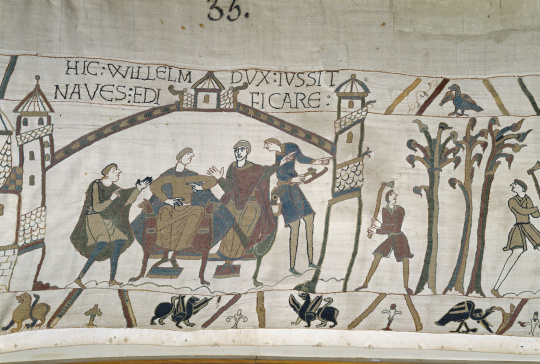 35.
HIC · WILLELM DVX : IVSSIT
NAVES : EDIFICARE :